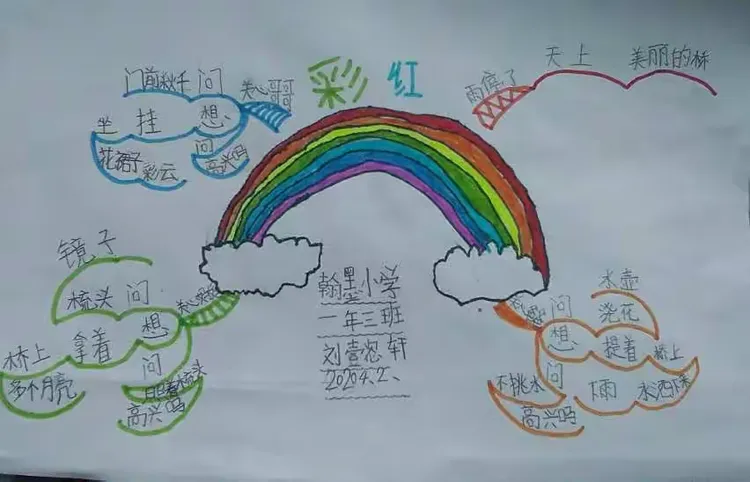 彩虹
雨停了
天上
美丽的桥
关心哥哥
门前秋千
问
想
坐
挂
花裙子
彩云
问
高兴吗
镜子
梳头
问
想
拿着
桥上
多个月亮
问
梳头
高兴吗
翰墨小学
一年三班
水壶
问
浇花
想
提着
桥上
下雨
水洒下来
问
不挑水
高兴吗